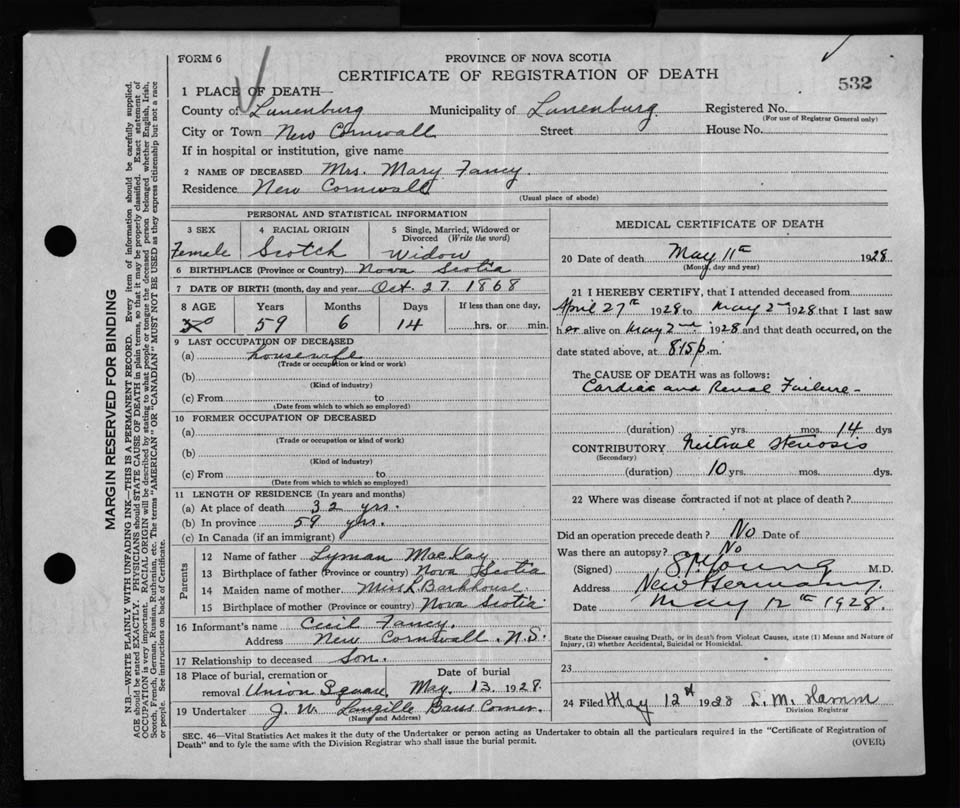 FORM 6
PROVINCE OF NOVA SCOTIA
CERTIFICATE OF REGISTRATION OF DEATH
532
1 PLACE OF DEATH—
County of Lunenburg Municipality of Lunenburg Registered No.
(For use of Registrar General only)
City or Town New Cornwall Street House No.
If in hospital or institution, give name
2 NAME OF DECEASED Mrs. Mary Fancy.
Residence New Cornwall
(Usual place of abode)
PERSONAL AND STATISTICAL INFORMATION
3 SEX 4 RACIAL ORIGIN 5 Single, Married, Widowed or
Divorced (Write the word)
Female Scotch Widow
6 BIRTHPLACE (Province or Country) Nova Scotia
7 DATE OF BIRTH (month, day and year) Oct. 27. 1868
8 AGE Years Months Days If less than one day,
59 6 14 hrs. or min.
9 LAST OCCUPATION OF DECEASED
(a) housewife
(Trade or occupation or kind of work)
(b)
(Kind of industry)
(c) From to
(Date from which to which so employed)
10 FORMER OCCUPATION OF DECEASED
(a)
(Trade or occupation or kind of work)
(b)
(Kind of industry)
(c) From to
(Date from which to which so employed)
11 LENGTH OF RESIDENCE (In years and months)
(a) At place of death 32 yrs.
(b) In province 59 yrs.
(c) In Canada (if an immigrant)
Parents
12 Name of father Lyman MacKay
13 Birthplace of father (Province or country) Nova Scotia
14 Maiden name of mother Miss L Barkhouse.
15 Birthplace of mother (Province or country) Nova Scotia
16 Informant's name Cecil Fancy.
Address New Cornwall. N.S.
17 Relationship to deceased Son.
18 Place of burial, cremation or Date of burial
removal Union Square May 13. 1928.
19 Undertaker J. W. Langille Barss Corner.
(Name and Address)
MEDICAL CERTIFICATE OF DEATH
20 Date of death May 11th 1928
(Month, day and year)
21 I HEREBY CERTIFY, that I attended deceased from
April 27th 1928 to May 2nd 1928 that I last saw
her alive on May 2nd 1928 and that death occurred, on the
date stated above, at 815 p.m.
The CAUSE OF DEATH was as follows:
Cardiac and Renal Failure -
(duration) yrs. mos. 14 dys
CONTRIBUTORY Mitral Stenosis
(Secondary)
(duration) 10 yrs. mos. dys.
22 Where was disease contracted if not at place of death?
Did an operation precede death? No Date of
Was there an autopsy? No
(Signed) Young M.D.
Address New Germany.
Date May 12th 1928.
State the Disease causing Death, or in death from Violent Causes, state (1) Means and Nature of
Injury, (2) whether Accidental, Suicidal or Homicidal.
23
24 Filed May 12th 1928 L. M. Hamm
Division Registrar
SEC. 46—Vital Statistics Act makes it the duty of the Undertaker or person acting as Undertaker to obtain all the particulars required in the "Certificate of Registration of
Death" and to fyle the same with the Division Registrar who shall issue the burial permit. (OVER)
MARGIN RESERVED FOR BINDING
N.B.—WRITE PLAINLY WITH UNFADING INK—THIS IS A PERMANENT RECORD. Every item of information should be carefully supplied.
AGE should be stated EXACTLY. PHYSICIANS should STATE CAUSE OF DEATH in plain terms, so that it may be properly classified. Exact statement of
OCCUPATION is very important. RACIAL ORIGIN will be described by stating to what people or tongue the deceased person belonged, whether English, Irish,
Scotch, French, German, Russian, Ruthenian, etc. The terms "AMERICAN" OR "CANADIAN" MUST NOT BE USED as they express citizenship but not a race
or people. See instructions on back of Certificate.